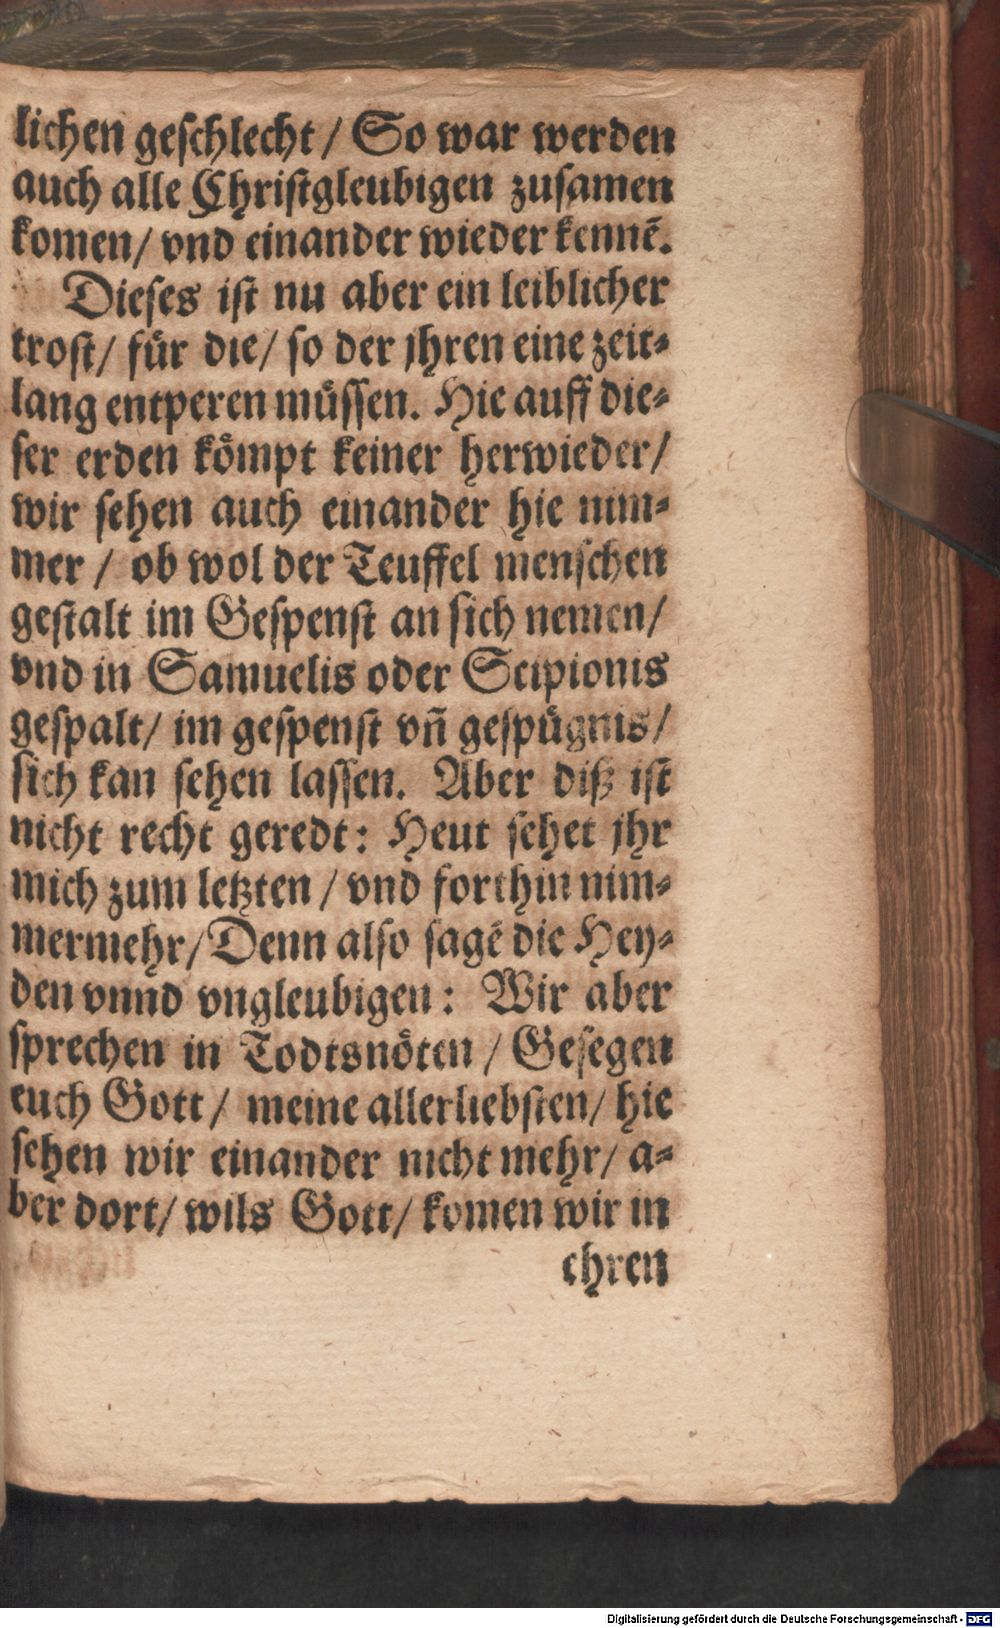 lichen geschlecht / So war werden
auch alle Christgleubigen zusamen
komen / vnd einander wieder kennẽ.
Dieses ist nu aber ein leiblicher
trost / für die / so der jhren eine zeit⸗
lang entperen müssen. Hie auff die⸗
ser erden kömpt keiner herwieder /
wir sehen auch einander hie nim⸗
mer / ob wol der Teuffel menschen
gestalt im Gespenst an sich nemen /
vnd in Samuelis oder Scipionis
gespalt / im gespenst vñ gespügnis /
sich kan sehen lassen. Aber diß ist
nicht recht geredt: Heut sehet jhr
mich zum letzten / vnd forthin nim⸗
mermehr / Denn also sagẽ die Hey⸗
den vnnd vngleubigen: Wir aber
sprechen in Todtsnöten / Gesegen
euch Gott / meine allerliebsten / hie
sehen wir einander nicht mehr / a⸗
ber dort / wils Gott / komen wir in
ehren
Digitalisierung gefördert durch die Deutsche Forschungsgemeinschaft - DFG